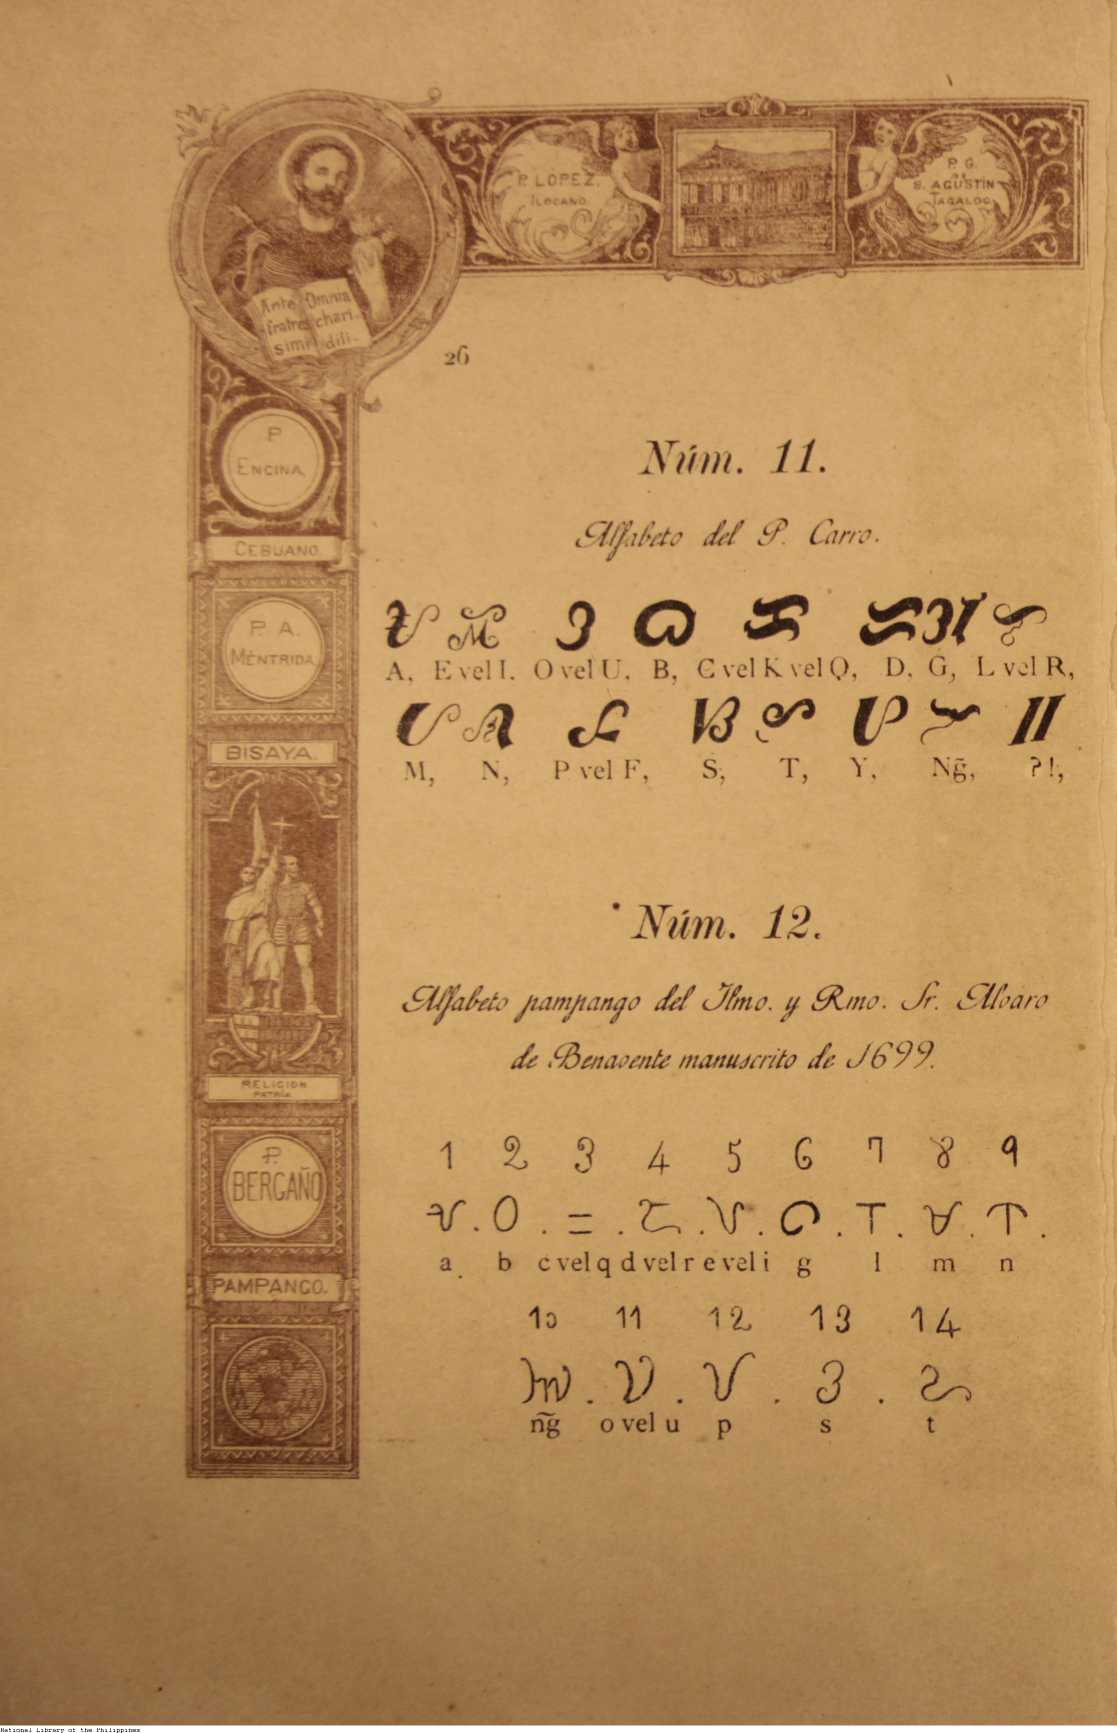 P. LOPEZ.
ILOCANO.
P. G.
DE
S. AGUSTIN
TAGALOG
Ante Omnia
fratres chari-
simi dili-
26
P
ENCINA
CEBUANO
P. A.
MÉNTRIDA
BISAYA.
RELIGION
PATRIA
P.
BERGAÑO
PAMPANGO.
Núm. 11.
Alfabeto del P. Carro.
A, E vel I. O vel U, B, C vel K vel Q, D, G, L vel R,
M, N, P vel F, S, T, Y, Ng̃, ?!,
Núm. 12.
Alfabeto pampango del Ilmo. y Rmo. Sr. Alvaro
de Benavente manuscrito de 1699.
1 2 3 4 5 6 7 8 9
a b c vel q d vel r e vel i g l m n
10 11 12 13 14
ng̃ o vel u p s t
National Library of the Philippines